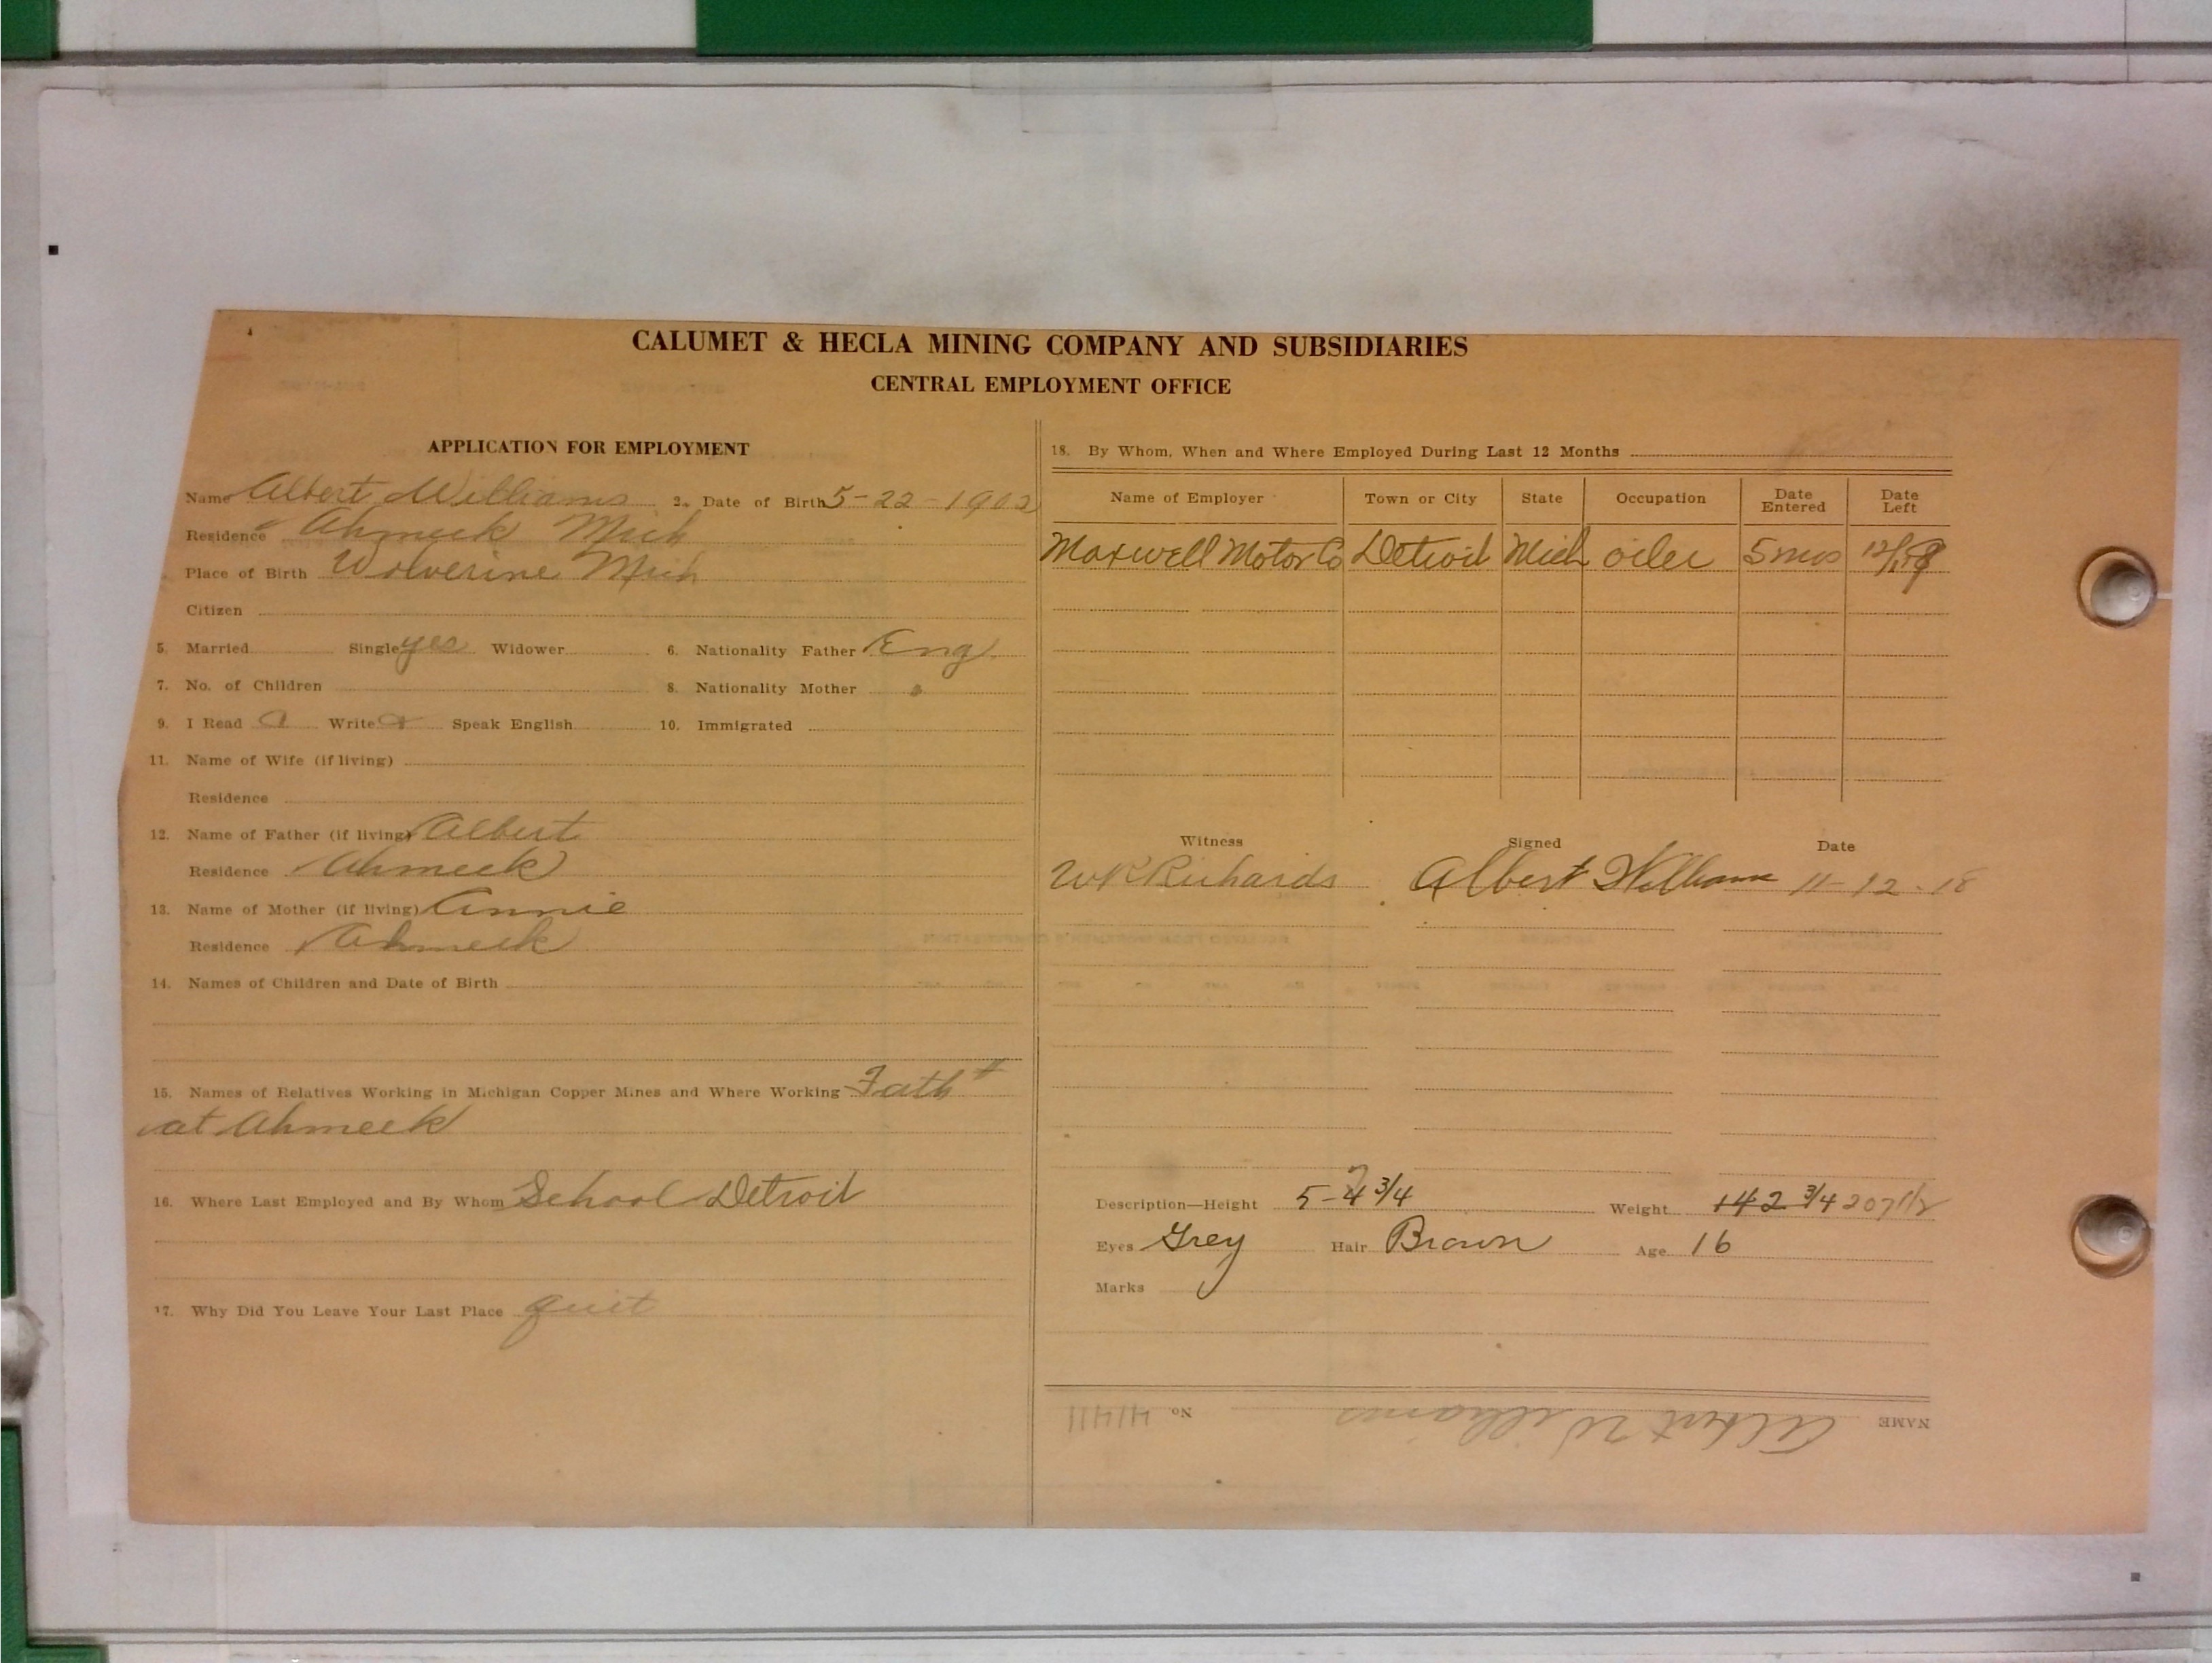 CALUMET & HECLA MINING COMPANY AND SUBSIDIARIES
CENTRAL EMPLOYMENT OFFICE
APPLICATION FOR EMPLOYMENT
Name Albert Williams 2. Date of Birth 5-22-1902
Residence Ahmeek Mich
Place of Birth Wolverine Mich
Citizen
5. Married Single yes Widower 6. Nationality Father Eng
7. No. of Children 8. Nationality Mother "
9. I Read Write Speak English 10. Immigrated
11. Name of Wife (if living)
Residence
12. Name of Father (if living) Albert
Residence Ahmeek
13. Name of Mother (if living) Annie
Residence Ahmeek
14. Names of Children and Date of Birth
15. Names of Relatives Working in Michigan Copper Mines and Where Working Fath
at Ahmeek
16. Where Last Employed and By Whom School Detroit
17. Why Did You Leave Your Last Place quit
18. By Whom, When and Where Employed During Last 12 Months
Name of Employer Town or City State Occupation Date Entered Date Left
Maxwell Motor Co Detroit Mich oiler 5 mos
Witness Signed Date
W R Richards Albert William 11-12-18
Description—Height 5-4 3/4 Weight 142 3/4 207 1/2
Eyes Grey Hair Brown Age 16
Marks
NAME Albert Williams No